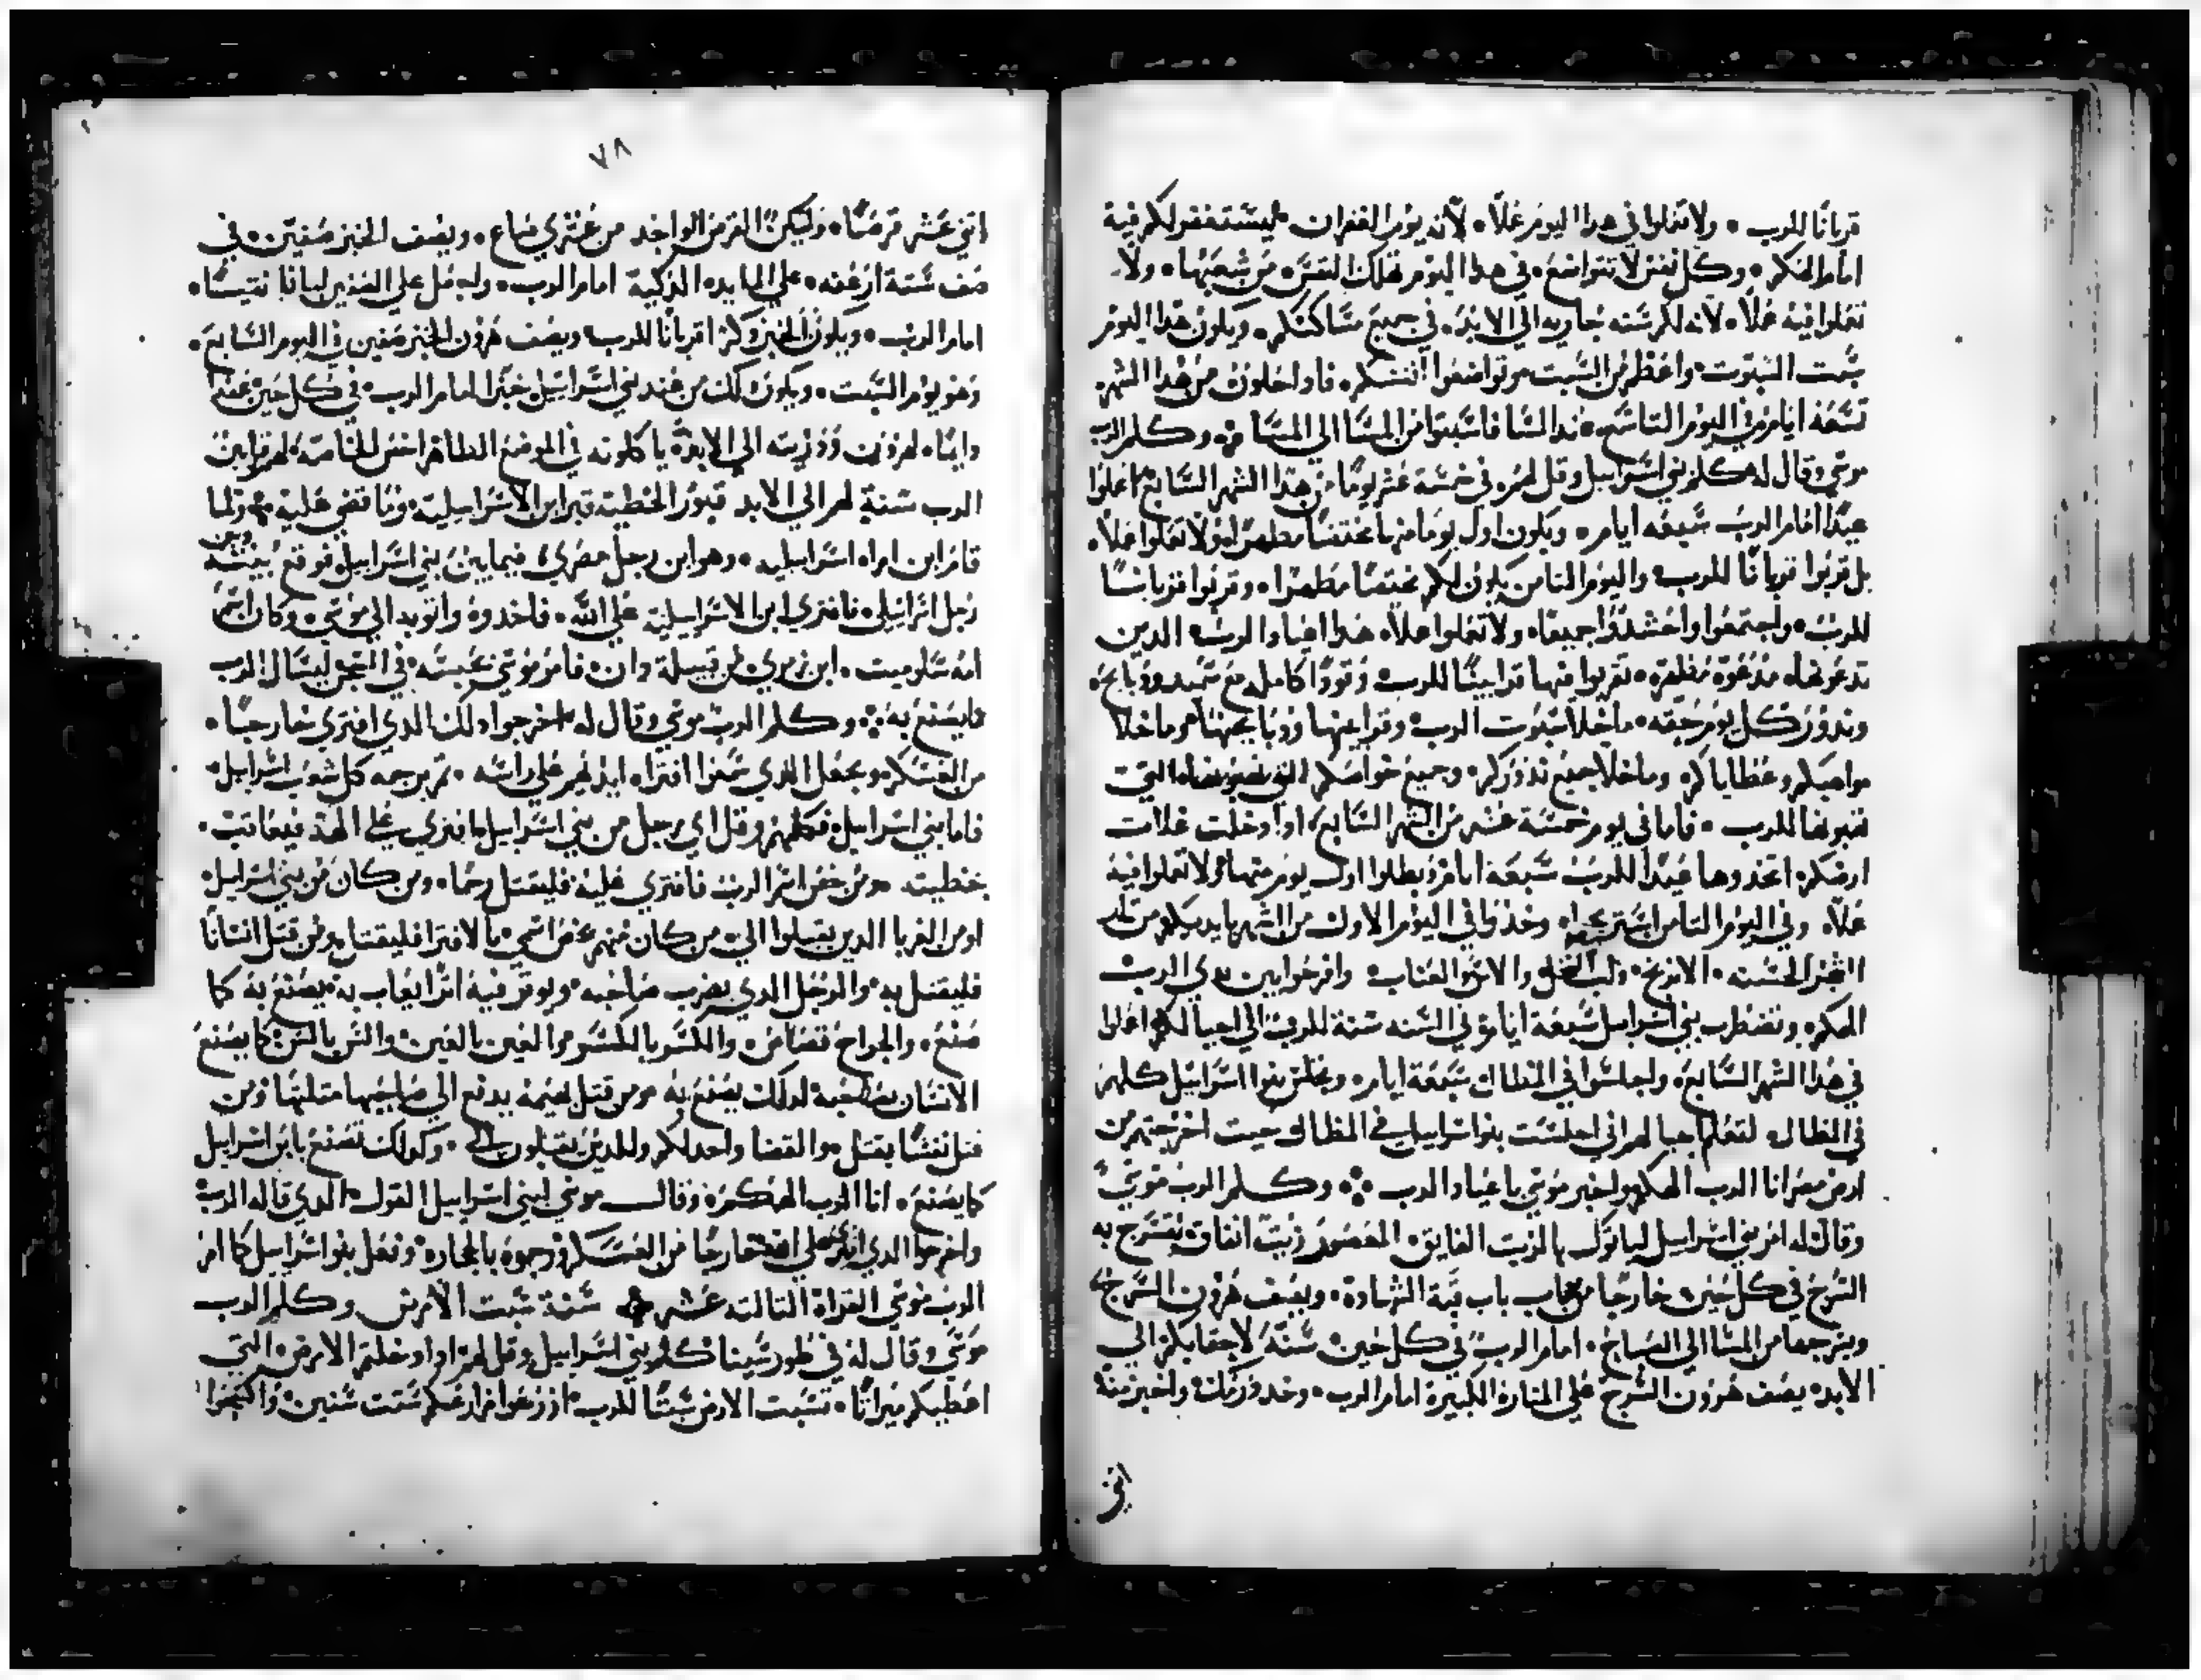 قربانًا للرب • ولا تعملوا في هدا اليوم عملاً • لانه يوم الغفران • ليستغفر لكم فية
امام الهكم • وكل نفس لا تتواضع • في هدا اليوم تهلك النفس • من شعبها • ولا
تعملوا فية عملاً • لانه لكم سنه جاريه الي الابد • في جميع مساكنكم • ويكون هدا اليوم
سبت السبوت • واعظم من السبت تواضعوا انفسكم • فادا خلون من هدا الشهر
تسعه ايام في اليوم التاسع • عند المسا فاسبتوا من المسا الي المسا • وكلم الرب
موسي وقال له كلم بني اسراييل وقل لهم • في خمسة عشر يومًا من هدا الشهر السابع اعملوا
عيدًا امام الرب سبعه ايام • ويكون اول يوم منها مختصًا مطهرًا ولا تعملوا عملاً •
بل قربوا قربانًا للرب • واليوم التامن يكون لكم مختصًا مطهرًا • وقربوا قربانًا
للرب • واجتمعوا واحتشدوا جميعًا • ولا تعملوا عملاً • هدا اعياد الرب • الدين
تدعونها • مدعوة مطهرة • تقربوا فيها قرابينًا للرب • وقودًا كامله مع سميد ودبايح •
وندور كل يوم بحقه • ما خلا سبوت الرب • وقرابينها ودبايحها • وما خلا
مواهبكم وعطاياكم • وما خلا جميع ندوركم • وجميع خواصكم التي
للرب • فاما في يوم خمسة عشر من الشهر السابع • ادا دخلت غلات
ارضكم • اتخدوها عيدًا للرب سبعة ايام • وبطلوا اول يوم منها ولا تعملوا فية
عملاً • وفي اليوم التامن استريحوا • وخدوا في اليوم الاول من الشهر بايديكم من تمر
الشجر الحسنه • الاترنج • ولب النخل والاس والعناب • وافرحوا بين يدي الرب
الهكم • بني اسراييل سبعة ايام • في السنه سنة للرب • الي اجيالكم • اعملوا
في هدا الشهر السابع • واجلسوا في المظال سبعة ايام • ويجلس بنوا اسراييل كلهم
في المظال • لتعلم اجيالهم اني اجلست بنوا اسراييل في المظال حيت اخرجتهم من
ارض مصر انا الرب الهكم • واخبر موسي باعياد الرب • وكلم الرب موسي
وقال له امر بني اسراييل لياتوك بالزيت الفايق • المعصور زيت انفاق • يتسرج به
السرج في كل حين • خارجًا من حجاب باب قبة الشهادة • ويصف هرون السرج
ويسرجها من المسا الي الصباح • امام الرب في كل حين • سنة لاحقابكم الي
الابد • يصف هرون السرج علي المنارة الكبيرة امام الرب • وخد واخبز منه
اتني
٧٨
اتني عشر قرصًا • وليكن القرص الواحد من عشري صاع • ويصف الخبز صفين • في
صف ستة ارغفه • علي المايده الزكية امام الرب • وليجعل علي الصفين لبانا نقيًا •
امام الرب • ويكون الخبز قربانًا للرب • ويصف هرون الخبز صفين في اليوم السابع •
وهو يوم السبت • ويكون دلك من عند بني اسراييل خبزًا امام الرب • في كل حين
دايمًا • لهرون ودريته الي الابد • ياكلونه في الموضع الطاهر اخص الخاصة • لهم قرابين
الرب سنة لهم الي الابد • الاسراييلية • وما قضي علية • ولما
قام ابن امراه اسراييليه • وهو ابن رجل مصري • فيما بين بني اسراييل • فوقع بينه وبين
رجل اسراييلي • فافتري ابن الاسراييلية علي الله • فاخدوه واتو به الي موسي • وكان اسم
امه سلوميت • ابنت زبري من قبيلة دان • فامر موسي بحبسه • في السجن ليسال الرب
ما يصنع به • وكلم الرب موسي وقال له • اخرجوا دلك الدي افتري خارجًا •
من العسكر • ويجعل الدي سمعوا افتراه ايديهم علي راسه • تم يرجمه كل شعوب اسراييل •
فاما بني اسراييل فكلمهم وقل اي رجل من بني اسراييل افتري علي الله فيعاقب •
بخطيته • ومن اسم الرب فافتري علية فليقتل رجمًا • ومن كان من بني اسراييل •
او من الغربا الدين يقبلوا الي • من كان منهم اسمي بالافترا فليقتل • ومن قتل انسانًا
فليقتل به • والرجل الدي يضرب صاحبه • ويوتر فية اترًا يعاب به • يصنع به كما
صنع • والجراح قصاص • والكسر بالكسر • والعين بالعين • والسن بالسن • كما يصنع
الانسان بصاحبه كدلك يصنع به • ومن قتل بهيمة يدفع الي صاحبها متلها • ومن
قتل نفسًا يقتل • والقضا واحد لكم وللدين يقبلون الي • وكدلك تصنع يابن اسراييل
كما يصنع • انا الرب الهكم • وقال موسي لبني اسراييل القول الدي قاله الرب
واخرجوا الدي افتري علي الله خارجًا من العسكر ورجموه بالحجارة • وفعل بنوا اسراييل كما امر
الرب موسي القراة التالته عشر • سنة سبت الارض وكلم الرب
موسي وقال له في طور سينا كلم بني اسراييل • وقل لهم • ادا دخلتم الارض • التي
اعطيكم ميراتًا • تسبت الارض سبتًا للرب • ازرعوا مزارعكم ست سنين • واكسحوا